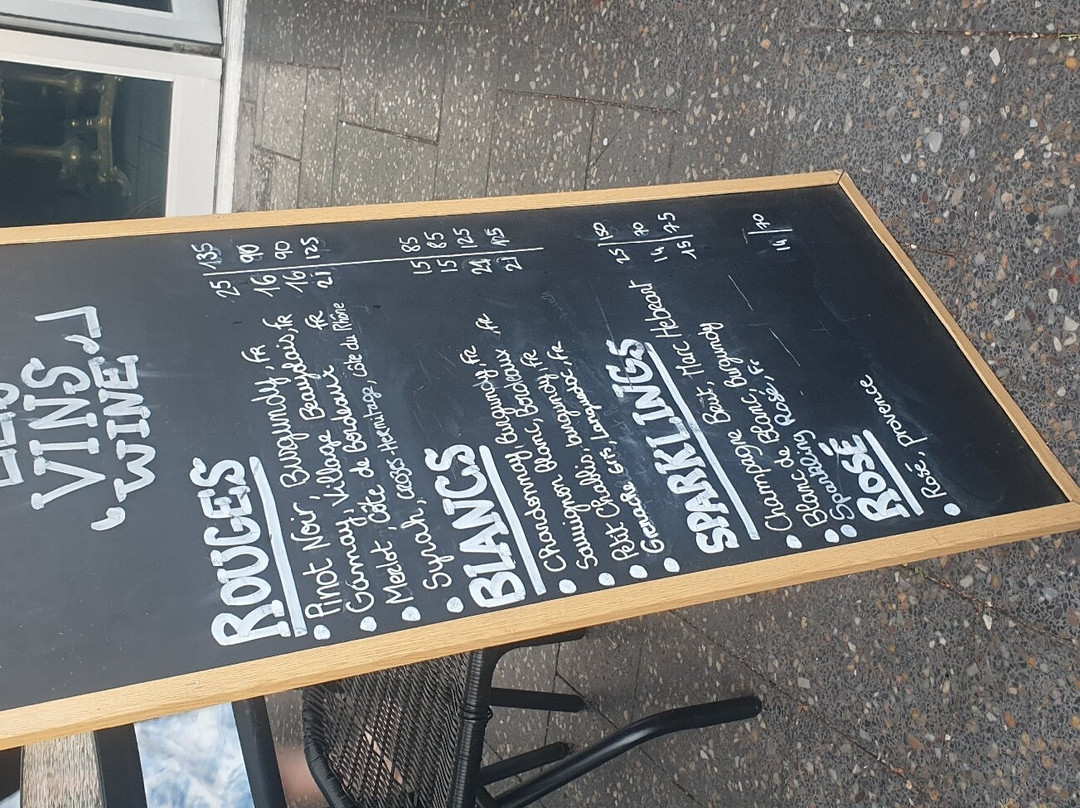 LES
VINS
"WINE"
ROUGES
• Pinot Noir, Burgundy, FR 25 | 135
• Gamay, Village Baujolais, FR 16 | 90
• Merlot Côte de Bordeaux FR 16 | 90
• Syrah, Crozes-Hermitage, côte du Rhône 21 | 125
BLANCS
• Chardonnay Burgundy, FR 15 | 85
• Sauvignon Blanc, Bordeaux, FR 15 | 85
• Petit Chablis, Burgundy, FR 21 | 125
• Grenache Languedoc, FR 21 | 125
SPARKLINGS
• Champagne Brut, Marc Hebrart 25 | 150
• Blanc de Blanc, Burgundy 14 | 70
• Sparkling Rosé, Fr 15 | 75
ROSÉ
• Rosé, provence 14 | 70